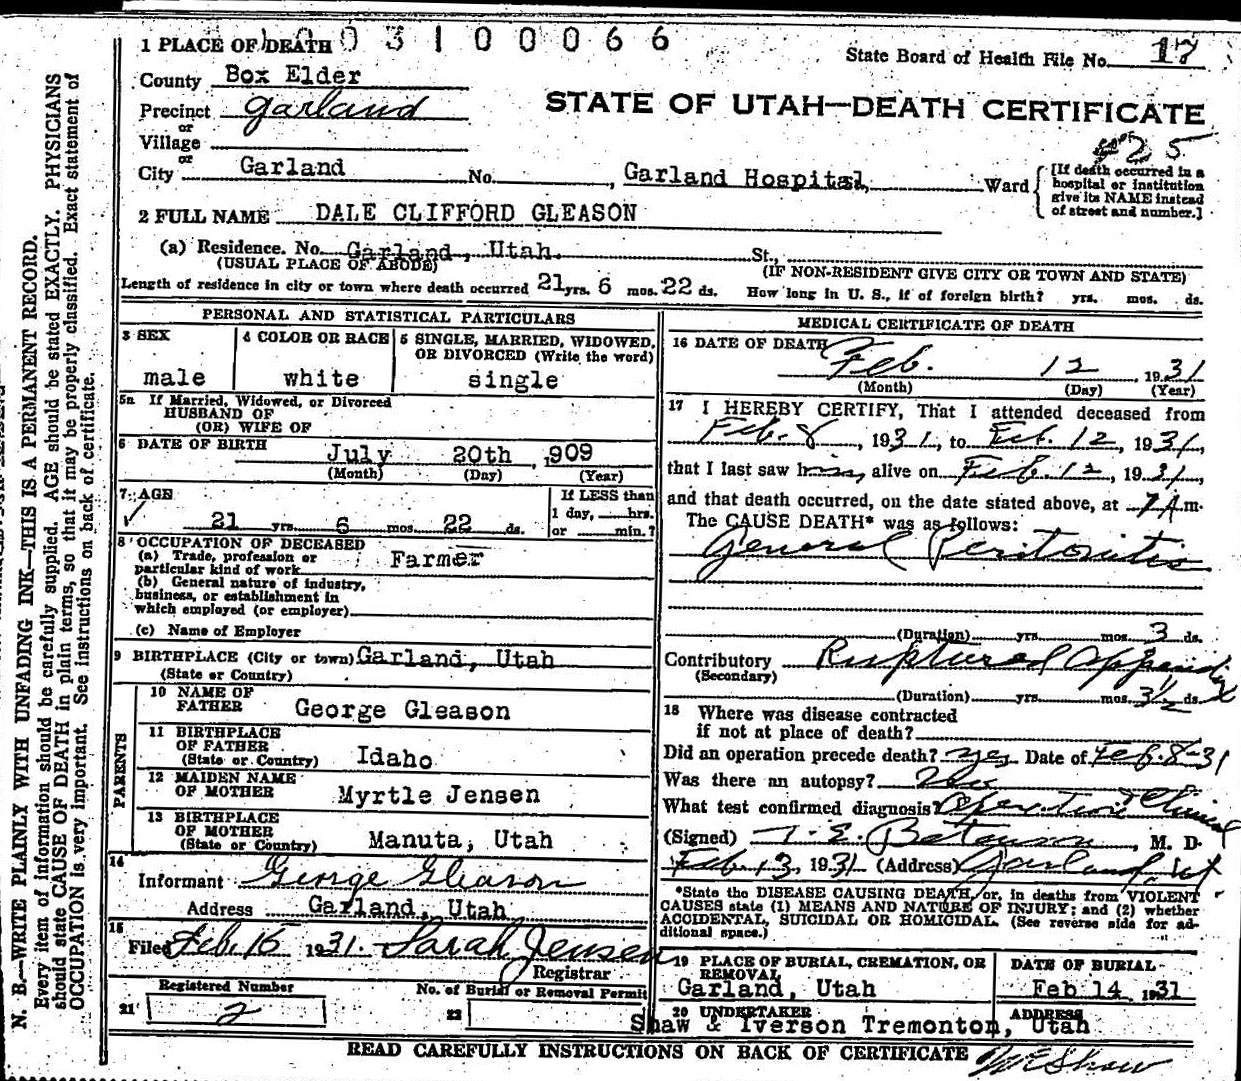 1 PLACE OF DEATH 0 0 3 1 0 0 0 6 6
State Board of Health File No. 17
County Box Elder
Precinct Garland
STATE OF UTAH—DEATH CERTIFICATE
or
Village
#25
or
City Garland No. , Garland Hospital, Ward
[If death occurred in a hospital or institution give its NAME instead of street and number.]
2 FULL NAME DALE CLIFFORD GLEASON
(a) Residence. No. Garland, Utah. St.,
(USUAL PLACE OF ABODE) (IF NON-RESIDENT GIVE CITY OR TOWN AND STATE)
Length of residence in city or town where death occurred 21 yrs. 6 mos. 22 ds. How long in U. S., if of foreign birth? yrs. mos. ds.
PERSONAL AND STATISTICAL PARTICULARS
3 SEX 4 COLOR OR RACE 5 SINGLE, MARRIED, WIDOWED,
OR DIVORCED (Write the word)
male white single
5a If Married, Widowed, or Divorced
HUSBAND OF
(OR) WIFE OF
6 DATE OF BIRTH July 20th , ,909
(Month) (Day) (Year)
7 AGE If LESS than
1 day, hrs.
21 yrs. 6 mos. 22 ds. or min.?
8 OCCUPATION OF DECEASED
(a) Trade, profession or
particular kind of work Farmer
(b) General nature of industry,
business, or establishment in
which employed (or employer)
(c) Name of Employer
9 BIRTHPLACE (City or town) Garland, Utah
(State or Country)
PARENTS
10 NAME OF
FATHER George Gleason
11 BIRTHPLACE
OF FATHER
(State or Country) Idaho
12 MAIDEN NAME
OF MOTHER Myrtle Jensen
13 BIRTHPLACE
OF MOTHER
(State or Country) Manuta, Utah
14
Informant George Gleason
Address Garland, Utah
15
Filed Feb. 16 1931. Sarah Jensen
Registrar
Registered Number No. of Burial or Removal Permit
21 2 22
MEDICAL CERTIFICATE OF DEATH
16 DATE OF DEATH
Feb. 12 , 1931
(Month) (Day) (Year)
17 I HEREBY CERTIFY, That I attended deceased from
Feb. 8, 1931, to Feb. 12, 1931,
that I last saw him alive on Feb. 12, 1931,
and that death occurred, on the date stated above, at 7 A.m.
The CAUSE DEATH* was as follows:
General Peritonitis
(Duration) yrs. mos. 3 ds.
Contributory Ruptured Appendix
(Secondary)
(Duration) yrs. mos. 3½ ds.
18 Where was disease contracted
if not at place of death?
Did an operation precede death? yes Date of Feb. 8-31
Was there an autopsy? No
What test confirmed diagnosis? Operation & Clinical
(Signed) , M. D.
Feb. 13, 1931 (Address) Garland, Ut
*State the DISEASE CAUSING DEATH, or, in deaths from VIOLENT
CAUSES state (1) MEANS AND NATURE OF INJURY; and (2) whether
ACCIDENTAL, SUICIDAL OR HOMICIDAL. (See reverse side for ad-
ditional space.)
19 PLACE OF BURIAL, CREMATION, OR
REMOVAL
Garland, Utah
DATE OF BURIAL
Feb 14 , 1931
20 UNDERTAKER ADDRESS
Shaw & Iverson Tremonton, Utah
READ CAREFULLY INSTRUCTIONS ON BACK OF CERTIFICATE
N. B.—WRITE PLAINLY WITH UNFADING INK—THIS IS A PERMANENT RECORD.
Every item of information should be carefully supplied. AGE should be stated EXACTLY. PHYSICIANS
should state CAUSE OF DEATH in plain terms, so that it may be properly classified. Exact statement of
OCCUPATION is very important. See instructions on back of certificate.